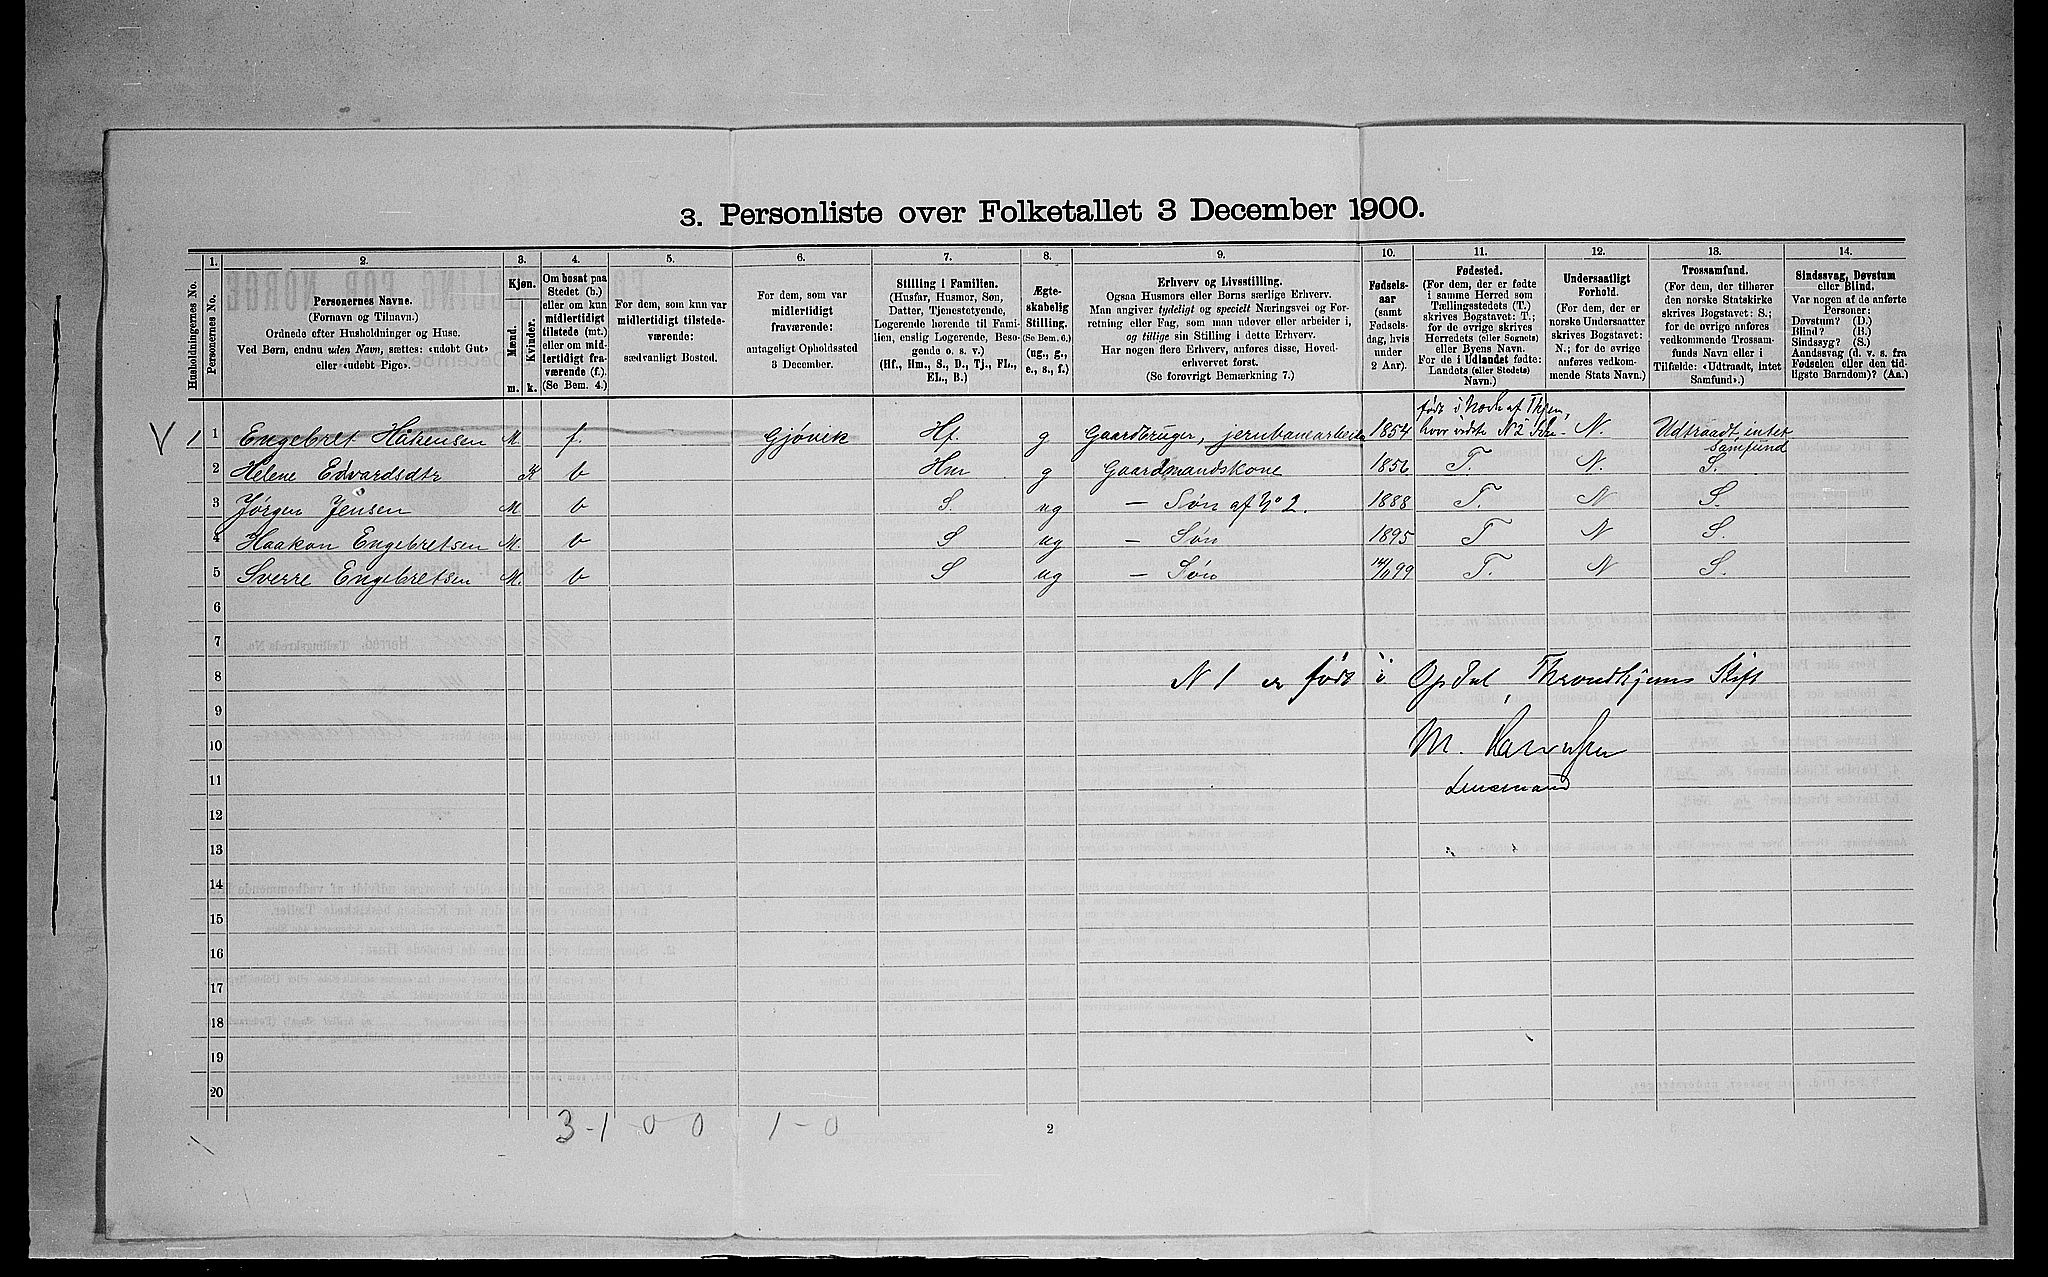 3. Personliste over Folketallet 3 December 1900.
1. 2. 3. 4. 5. 6. 7. 8. 9. 10. 11. 12. 13. 14.
Husholdningernes No.
Personernes No.
Personernes Navne.
(Fornavn og Tilnavn.)
Ordnede efter Husholdninger og Huse.
Ved Børn, endnu uden Navn, sættes: «udøbt Gut»
eller «udøbt Pige».
Kjøn.
Mænd.
Kvinder.
m. k.
Om bosat paa
Stedet (b.)
eller om kun
midlertidigt
tilstede (mt.)
eller om mid-
lertidigt fra-
værende (f.).
(Se Bem. 4.)
For dem, som kun var
midlertidigt tilstede-
værende:
sædvanligt Bosted.
For dem, som var
midlertidigt
fraværende:
antageligt Opholdssted
3 December.
Stilling i Familien.
(Husfar, Husmor, Søn,
Datter, Tjenestetyende,
Logerende hørende til Fami-
lien, enslig Logerende, Besø-
gende o. s. v.)
(Hf., Hm., S., D., Tj., FL.,
EL., B.)
Ægte-
skabelig
Stilling.
(Se Bem. 6.)
(ug., g.,
e., s., f.)
Erhverv og Livsstilling.
Ogsaa Husmors eller Børns særlige Erhverv.
Man angiver tydeligt og specielt Næringsvei og For-
retning eller Fag, som man udøver eller arbeider i,
og tillige sin Stilling i dette Erhverv.
Har nogen flere Erhverv, anføres disse, Hoved-
erhvervet først.
(Se forøvrigt Bemærkning 7.)
Fødsels-
aar
(samt
Fødsels-
dag, hvis
under
2 Aar).
Fødested.
(For dem, der er fødte
i samme Herred som
Tællingsstedets (T.)
skrives Bogstavet: T.;
for de øvrige skrives
Herredets (eller Sognets)
eller Byens Navn.
For de i Udlandet fødte:
Landets (eller Stedets)
Navn.)
Undersaatligt
Forhold.
(For dem, der er
norske Undersaatter
skrives Bogstavet:
N.; for de øvrige
anføres vedkom-
mende Stats Navn.)
Trossamfund.
(For dem, der tilhører
den norske Statskirke
skrives Bogstavet: S.;
for de øvrige anføres
vedkommende Trossam-
funds Navn eller i
Tilfælde: «Udtraadt, intet
Samfund».)
Sindssvag, Døvstum
eller Blind.
Var nogen af de anførte
Personer:
Døvstum? (D.)
Blind? (B.)
Sindssyg? (S.)
Aandssvag (d. v. s. fra
Fødselen eller den tid-
ligste Barndom)? (Aa.)
V 1 1 Engebret Håkensen M f. Gjøvik Hf. g Gaardbruger, jernbanearbeider 1854 født i N. Udtraadt, intet Samfund
2 Helene Edvardsdtr K b Hm g Gaardmandskone 1856 T. N. S.
3 Jørgen Jensen M b S. ug — Søn af No 2. 1888 T. N S.
4 Haakon Engebretsen M. b S ug — Søn 1895 T N S.
5 Sverre Engebretsen M. b S ug — Søn 14/11 99 T. N S.
6
7
8 N 1 er født i Opdal, Throndhjems Stift
9
10 M.
11 Lensmand
12
13
14
15
16
17
18
19
20
3-1 0 0 1-0
2